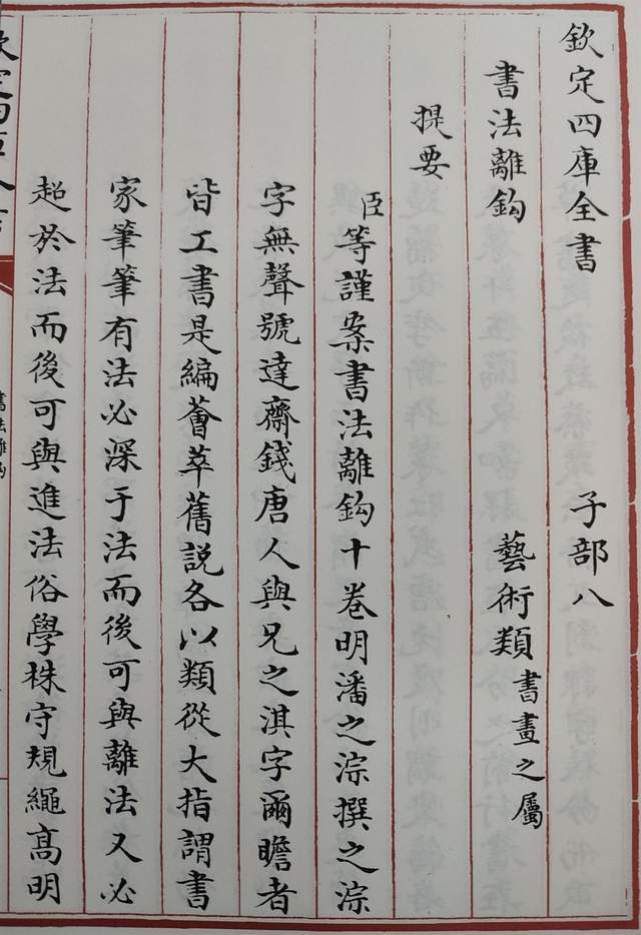 欽定四庫全書　子部八
書法離鈎　藝術類書畫之屬
提要
臣等謹案書法離鈎十卷明潘之淙撰之淙
字無聲號達齋錢唐人與兄之淇字爾瞻者
皆工書是編薈萃舊説各以類從大指謂書
家筆筆有法必深于法而後可與離法又必
超於法而後可與進法俗學株守規繩髙明